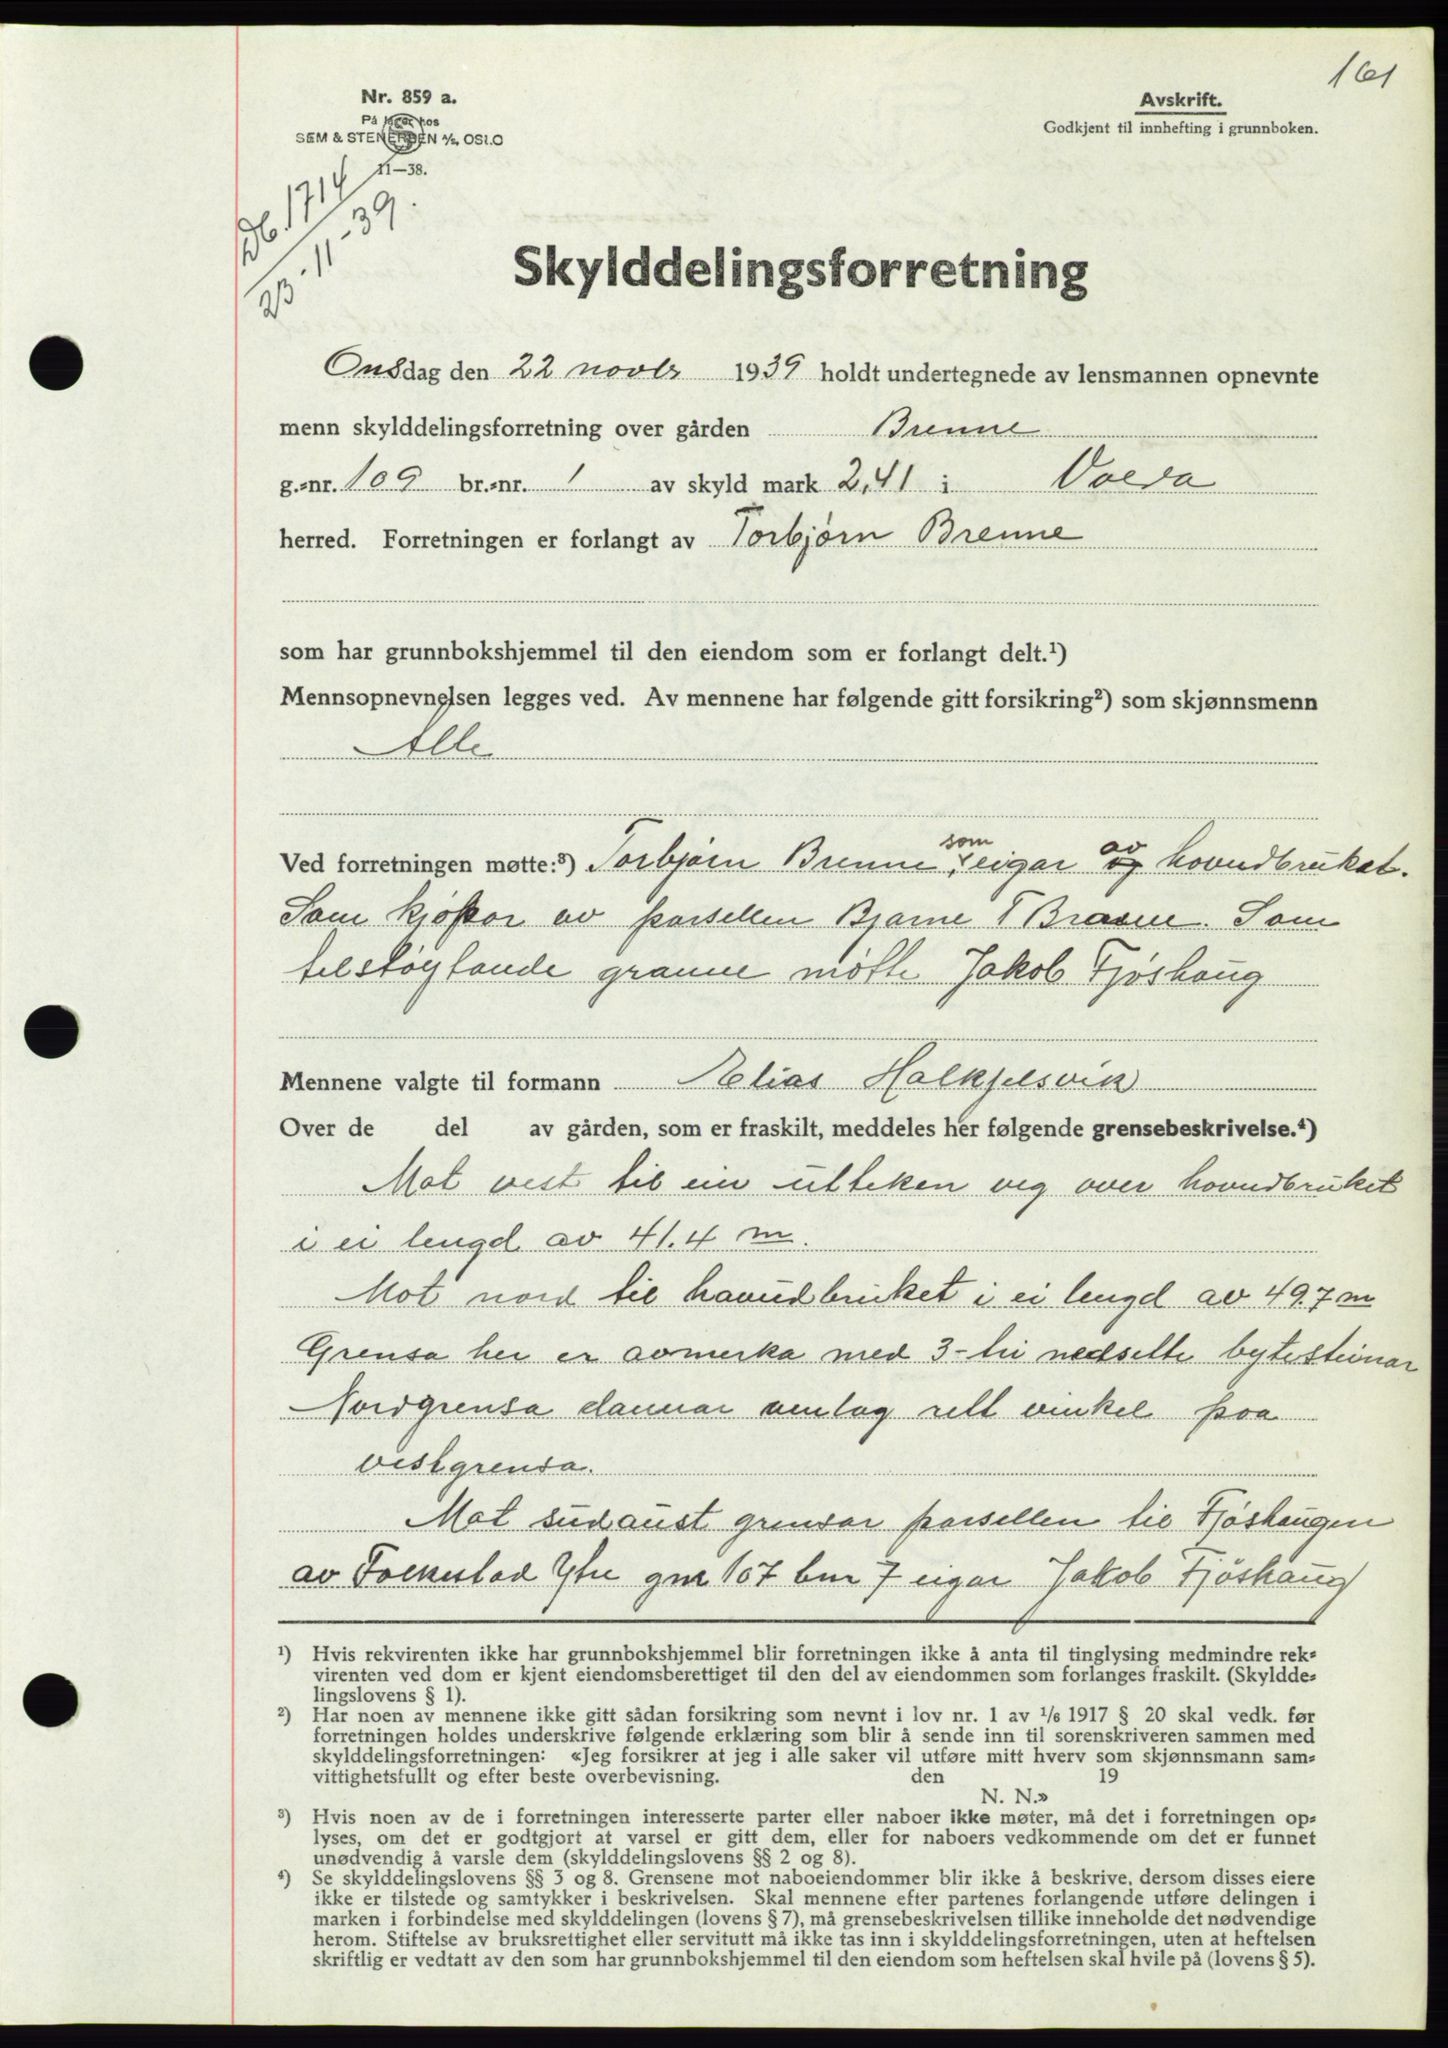 161
Nr. 859 a.
På lager hos
SEM & STENERSEN A/S, OSLO
11—38.
Avskrift.
Godkjent til innhefting i grunnboken.
Db. 1714
23-11-39.
Skylddelingsforretning
Onsdag den 22 novbr 1939 holdt undertegnede av lensmannen opnevnte
menn skylddelingsforretning over gården Brenne
g.-nr. 109 br.-nr. 1 av skyld mark 2,41 i Volda
herred. Forretningen er forlangt av Torbjørn Brenne
som har grunnbokshjemmel til den eiendom som er forlangt delt.¹)
Mennsopnevnelsen legges ved. Av mennene har følgende gitt forsikring²) som skjønnsmenn
Alle
Ved forretningen møtte:³) Torbjørn Brenne, som eigar av hovudbruket.
Som kjøpar av parsellen Bjarne T Brenne. Som
tilstøytande granne møtte Jakob Fjøshaug
Mennene valgte til formann Elias Halkjelsvik
Over de del av gården, som er fraskilt, meddeles her følgende grensebeskrivelse.⁴)
Mot vest til ein utteken veg over hovudbruket
i ei lengd av 41.4 m.
Mot nord til hovudbruket i ei lengd av 49.7 m
Grensa her er avmerka med 3-tri nedsette bytesteinar
Nordgrensa dannar umlag rett vinkel paa
vestgrensa.
Mot sudaust grensar parsellen til Fjøshaugen
av Folkestad Ytre gnr 107 bnr 7 eigar Jakob Fjøshaug
¹) Hvis rekvirenten ikke har grunnbokshjemmel blir forretningen ikke å anta til tinglysing medmindre rek-
virenten ved dom er kjent eiendomsberettiget til den del av eiendommen som forlanges fraskilt. (Skyldde-
lingslovens § 1).
²) Har noen av mennene ikke gitt sådan forsikring som nevnt i lov nr. 1 av 1/6 1917 § 20 skal vedk. før
forretningen holdes underskrive følgende erklæring som blir å sende inn til sorenskriveren sammen med
skylddelingsforretningen: «Jeg forsikrer at jeg i alle saker vil utføre mitt hverv som skjønnsmann sam-
vittighetsfullt og efter beste overbevisning. den 19
N. N.»
³) Hvis noen av de i forretningen interesserte parter eller naboer ikke møter, må det i forretningen op-
lyses, om det er godtgjort at varsel er gitt dem, eller for naboers vedkommende om det er funnet
unødvendig å varsle dem (skylddelingslovens §§ 2 og 8).
⁴) Se skylddelingslovens §§ 3 og 8. Grensene mot naboeiendommer blir ikke å beskrive, dersom disses eiere
ikke er tilstede og samtykker i beskrivelsen. Skal mennene efter partenes forlangende utføre delingen i
marken i forbindelse med skylddelingen (lovens § 7), må grensebeskrivelsen tillike inneholde det nødvendige
herom. Stiftelse av bruksrettighet eller servitutt må ikke tas inn i skylddelingsforretningen, uten at heftelsen
skriftlig er vedtatt av den som har grunnbokshjemmel til den eiendom som heftelsen skal hvile på (lovens § 5).